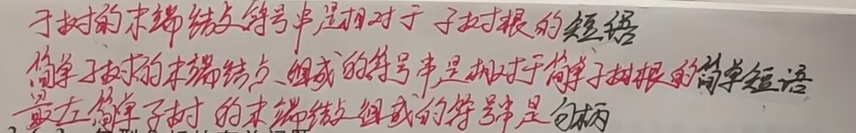 子树的末端结点符号串是相对于子树根的短语
简单子树的末端结点组成的符号串是相对于简单子树根的简单短语
最左简单子树的末端结点组成的符号串是句柄